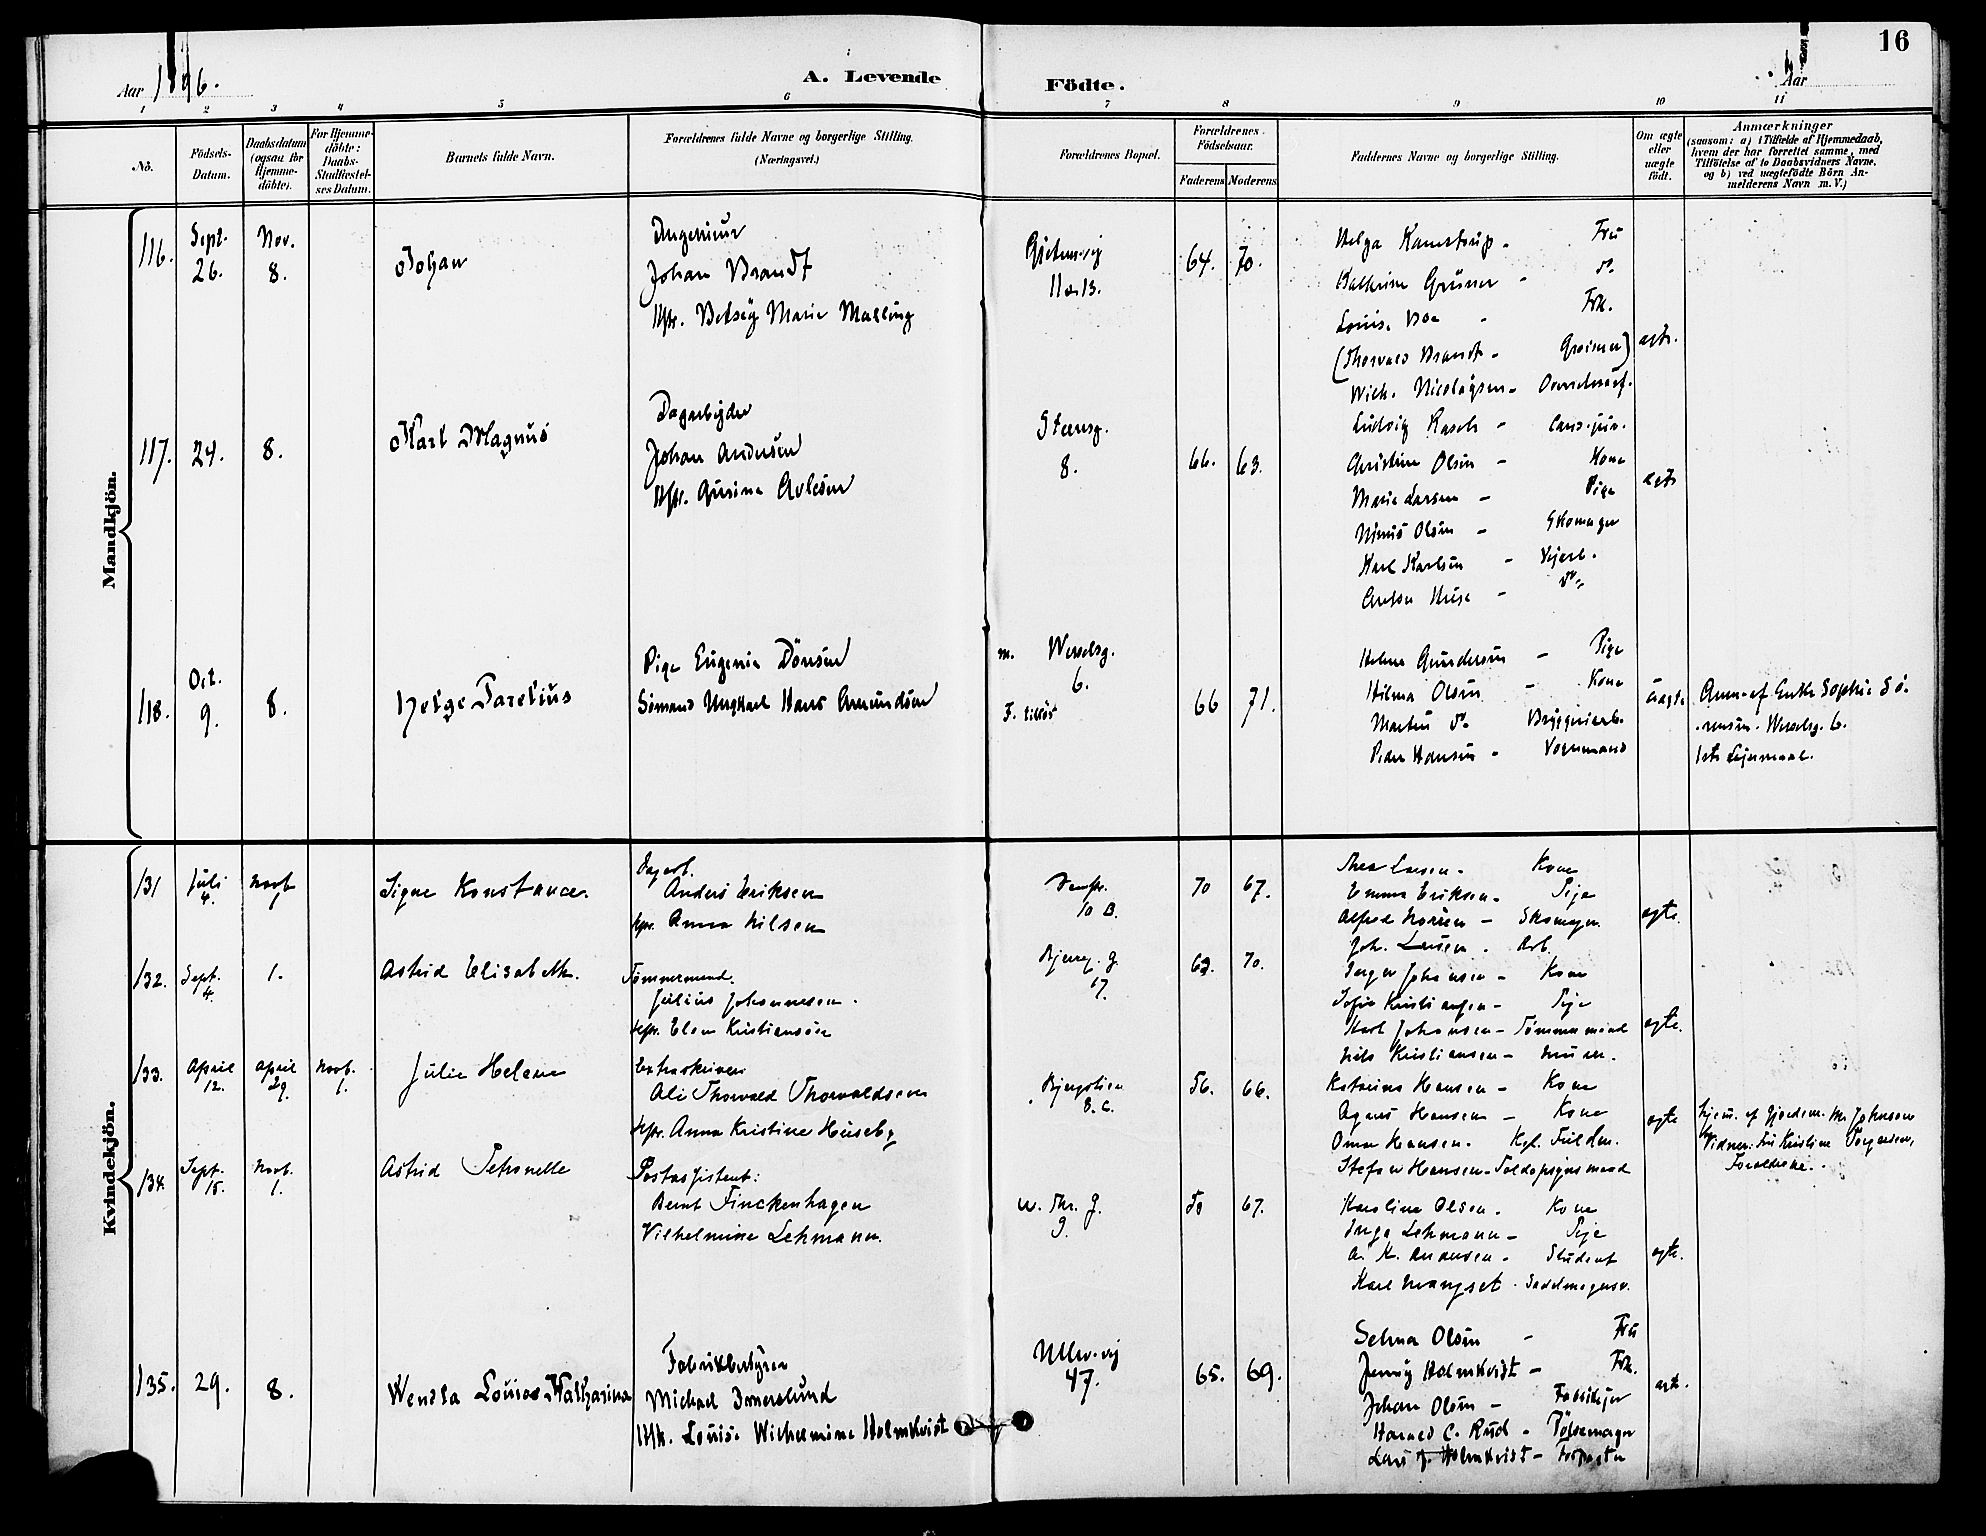 Aar 1896.
A. Levende
Födte.
Aar
16
1 2 3 4 5 6 7 8 9 10 11
No.
Födsels-
Datum.
Daabsdatum
(ogsaa for
Hjemme-
döbte).
For Hjemme-
döbte:
Daabs-
Stadfæstel-
ses Datum.
Barnets fulde Navn.
Forældrenes fulde Navne og borgerlige Stilling.
(Næringsvei.)
Forældrenes Bopæl.
Forældrenes
Födselsaar.
Faderens Moderens
Faddernes Navne og borgerlige Stilling.
Om ægte
eller
uægte
født.
Anmærkninger
(saasom: a) i Tilfælde af Hjemmedaab,
hvem der har forrettet samme, med
Tilföielse af to Daabsvidners Navne,
og b) ved uægtefödte Börn An-
melderens Navn m. V.)
Mandkjön.
116.
Sept.
26.
Nov.
8.
Johan
Ingenieur
Johan Brandt
Hstr. Betsey Marie Malling
11 & 13.
64. 70.
Helga Kamstrup - Fru
Kathrine Grüner - do
Louise Boe - Frk.
(Thorvald Brandt - Grosserer)
Wilh. Nicolaysen -
ægte.
117.
24.
8.
Karl Magnus
Dagarbeyder
Johan Andersen
Hstr. Gusine
Steensg.
8.
66. 63.
Ludvig Rasch - Cand. jur.
Christine Olsen - Kone
Marie Larsen - Pige
Olsen - Skomager
Karl Karlsen -
ægte
118.
Oct.
9.
8.
Helge Parelius
Pige Eugenie Dönsen
Sömand Ungkarl Hans Amundsen
m. Wesselsg.
6.
66 71.
Helene Gundersen - Pige
Hilma Olsen - Kone
Martin do Bryggeriarb.
Peder Hansen - Vognmand
uægte
Anm. af Enke Sophie Sö-
rensen. Wesselsg. 6.
1ste Leiermaal.
Kvindekjön.
131
Juli
4.
Novb
1
Signe Konstance.
Dagarb.
Anders Eriksen
Hstr. Anna Nilsen
10 B.
70 67.
Thea Larsen - Kone
Emma Eriksen - Pige
Alfred - Skomager.
Joh. Larsen. Arb.
ægte.
132.
Sept.
4.
1.
Astrid Elisabeth.
Tömmermand.
Julius Johannesen.
Hstr. Elen Kristiansen
Bjerreg. g.
17.
63. 70.
Inger Johansen - Kone
Sofie Kristiansen - Pige
Karl Johansen - Tömmermand
Nils Kristiansen - Murer.
ægte.
133.
April
12.
April
29.
Novb.
1.
Julie Helene
Extraskriver
Ali Thorvald Thorvaldsen
Hstr. Anna Kristine Huseby
Bjergstien
8. c.
56. 66.
Katrine Hansen - Kone
Agnes Hansen - Kone
Omar Hansen. Kgl. Fuldm.
Stefan Hansen - Toldopsynsmand
ægte
hjem. af Gjordem. M. Johnsen
Vidner: Fru Kristine Torgersen,
Forældrene.
134.
Sept.
15.
Novb.
1.
Astrid Petronelle
Postassistent:
Bernt Finckenhagen
Vilhelmine Lehmann.
w. Thr. g.
9.
50 67.
Karoline Olsen. Kone
Inga Lehmann - Pige
A. K. Andersen - Student
Karl Mangset. Sadelmagersv.
ægte.
135.
29.
8.
Wendla Louise Katharina
Fabrikbestyrer
Michael Immerslund
Hstr. Louise Wilhelmine Holmkvist
Ullev.vej
47.
65. 69.
Selma Olsen - Fru
Jenny Holmkvist - Frk.
Johan Olsen - Fabrikejer
Harald C. Rud - Pölsemager
Lars J. Holmkvist - Forpagter
ægte.